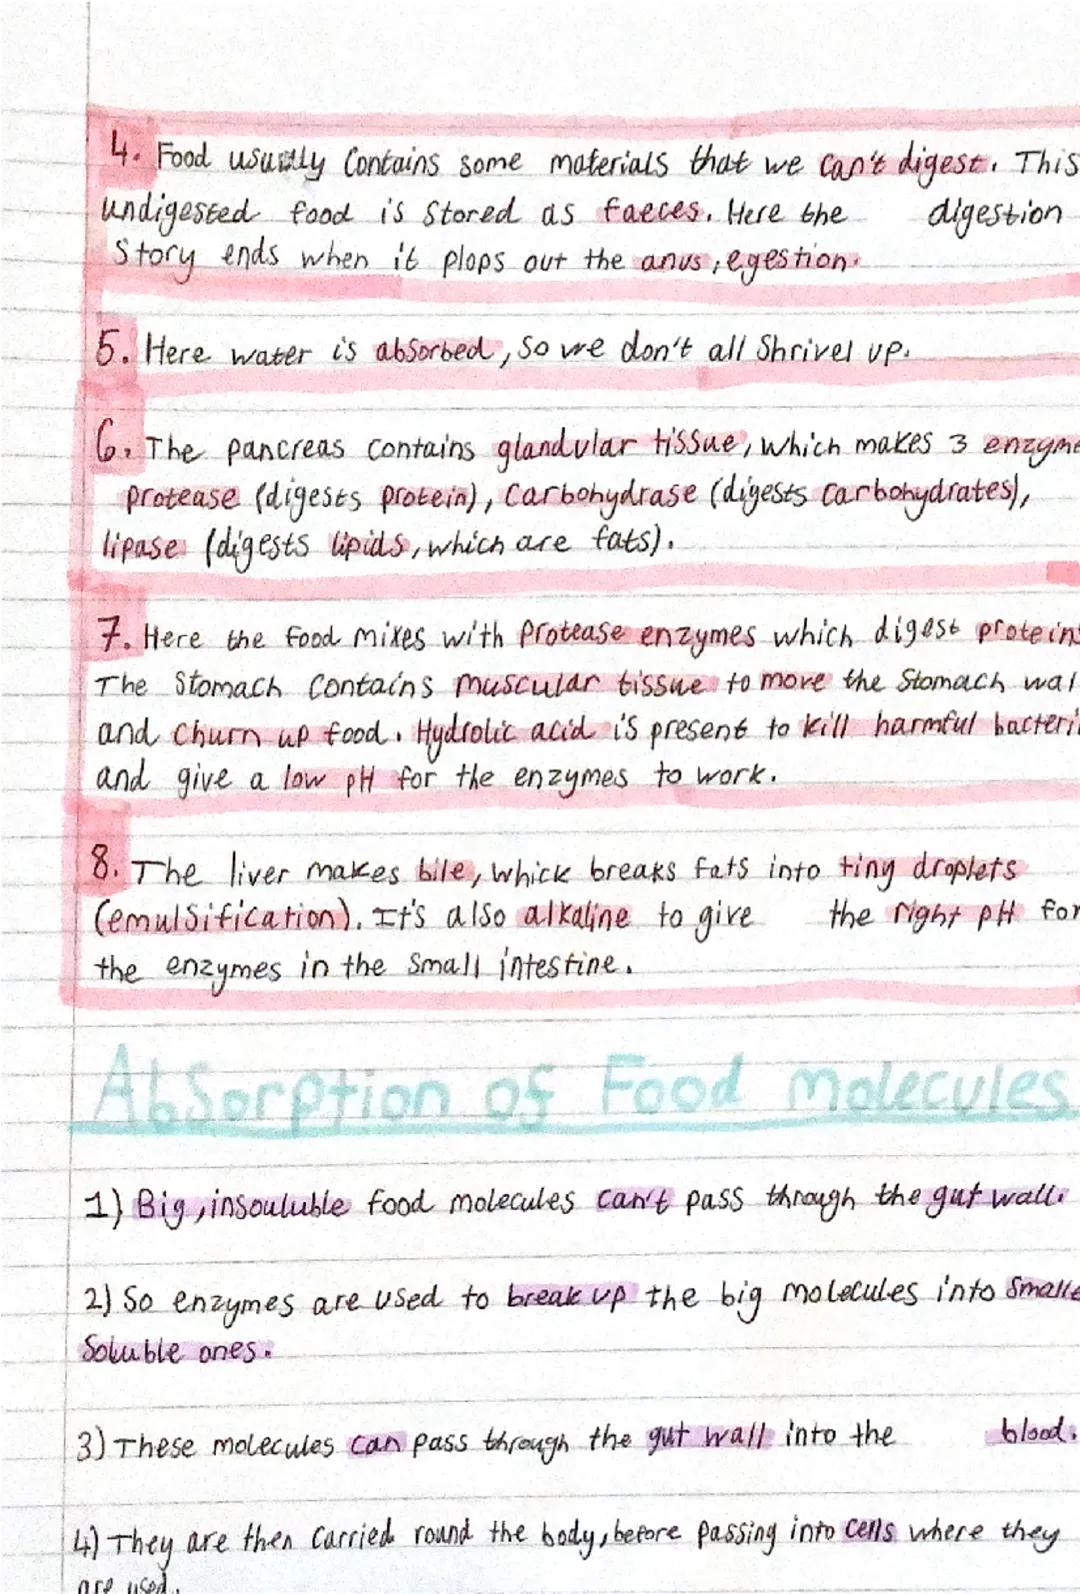 4. Food usually contains some materials that we can't digest. This
undigested food is stored as faeces. Here the digestion
story ends when it plops out the anus, egestion.
5. Here water is absorbed, so we don't all shrivel up.
6. The pancreas contains glandular tissue, which makes 3 enzyme
protease (digests protein), carbohydrase (digests carbohydrates),
lipase (digests lipids, which are fats).
7. Here the food mixes with protease enzymes which digest proteins
The stomach contains muscular tissue to move the stomach wal
and churn up food. Hydrolic acid is present to kill harmful bacteri
and give a low pH for the enzymes to work.
8. The liver makes bile, whick breaks fats into tiny droplets
(emulsification). It's also alkaline to give the right pH for
the enzymes in the small intestine.
Absorption of Food molecules
1) Big, insouluble food molecules can't pass through the gut wall.
2) So enzymes are used to break up the big molecules into smalle
soluble ones.
3) These molecules can pass through the gut wall into the blood.
4) They are then carried round the body, before passing into cells where they
are used.